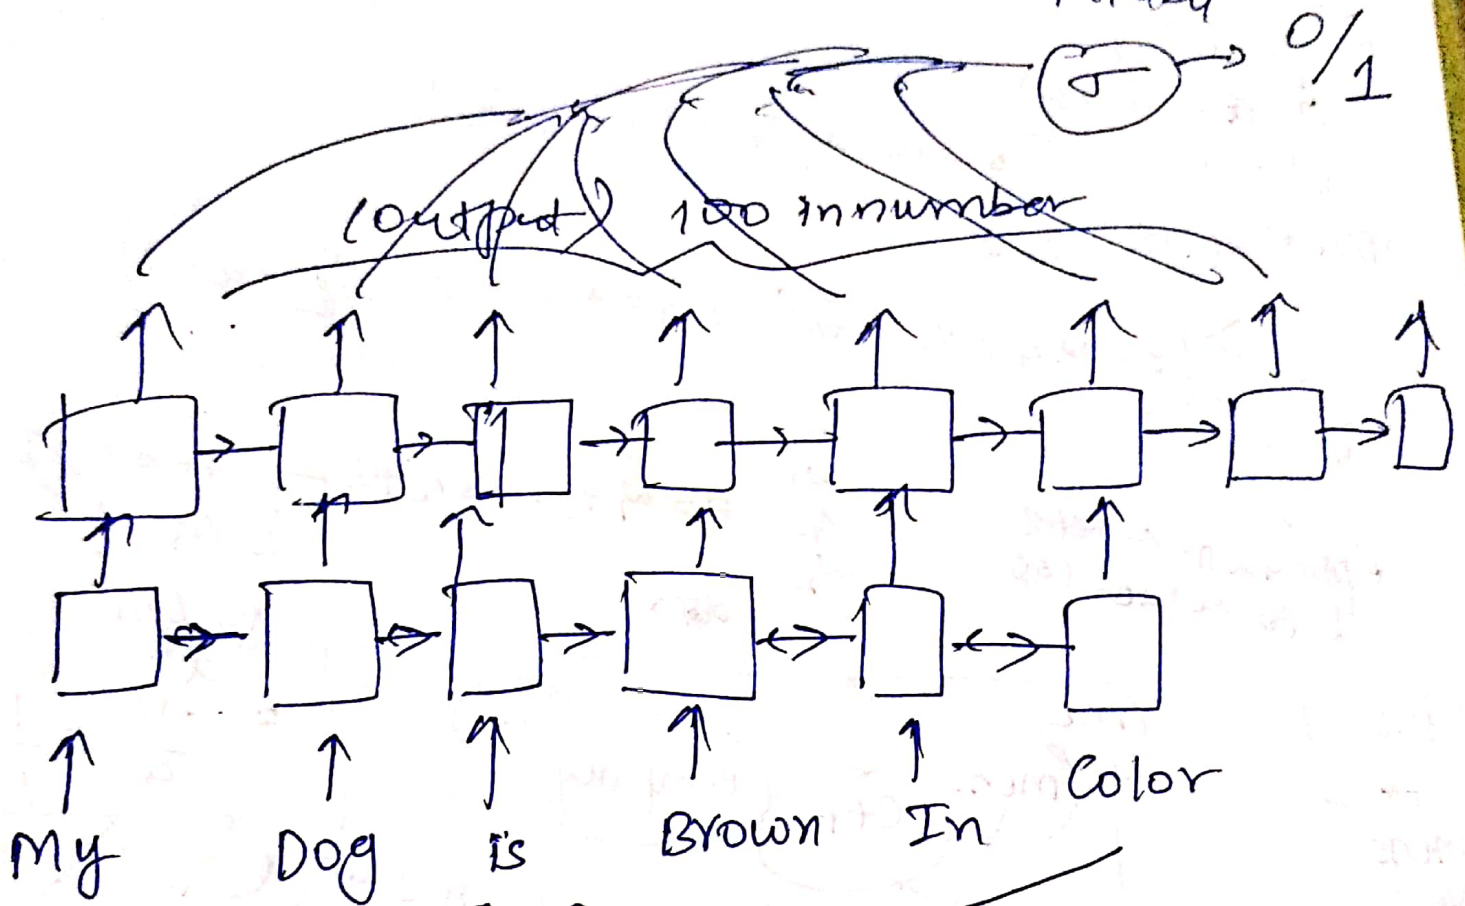 0/1
σ
(output) 100 in number
My Dog is Brown In Color